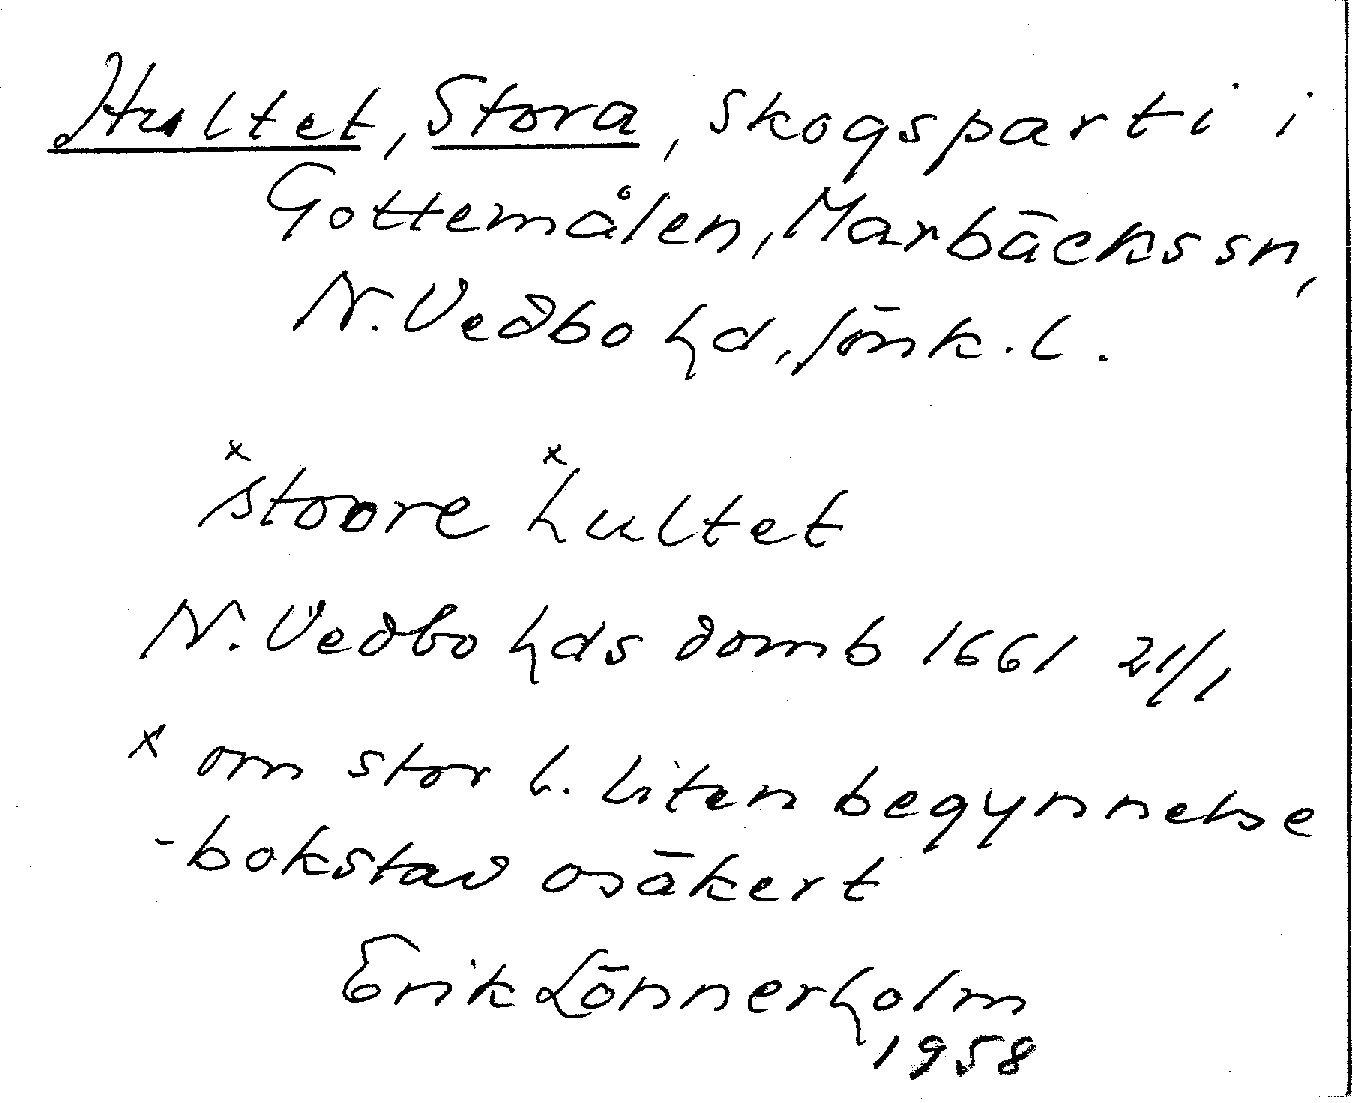 Hultet, Stora, skogsparti i
Gottemålen, Marbäcks sn,
N. Vedbo hd, Jönk. l.
ˣstoore ˣhultet
N. Vedbo hds domb 1661 21/1
x om stor l. liten begynnelse
-bokstav osäkert
Erik Lönnerholm
1958